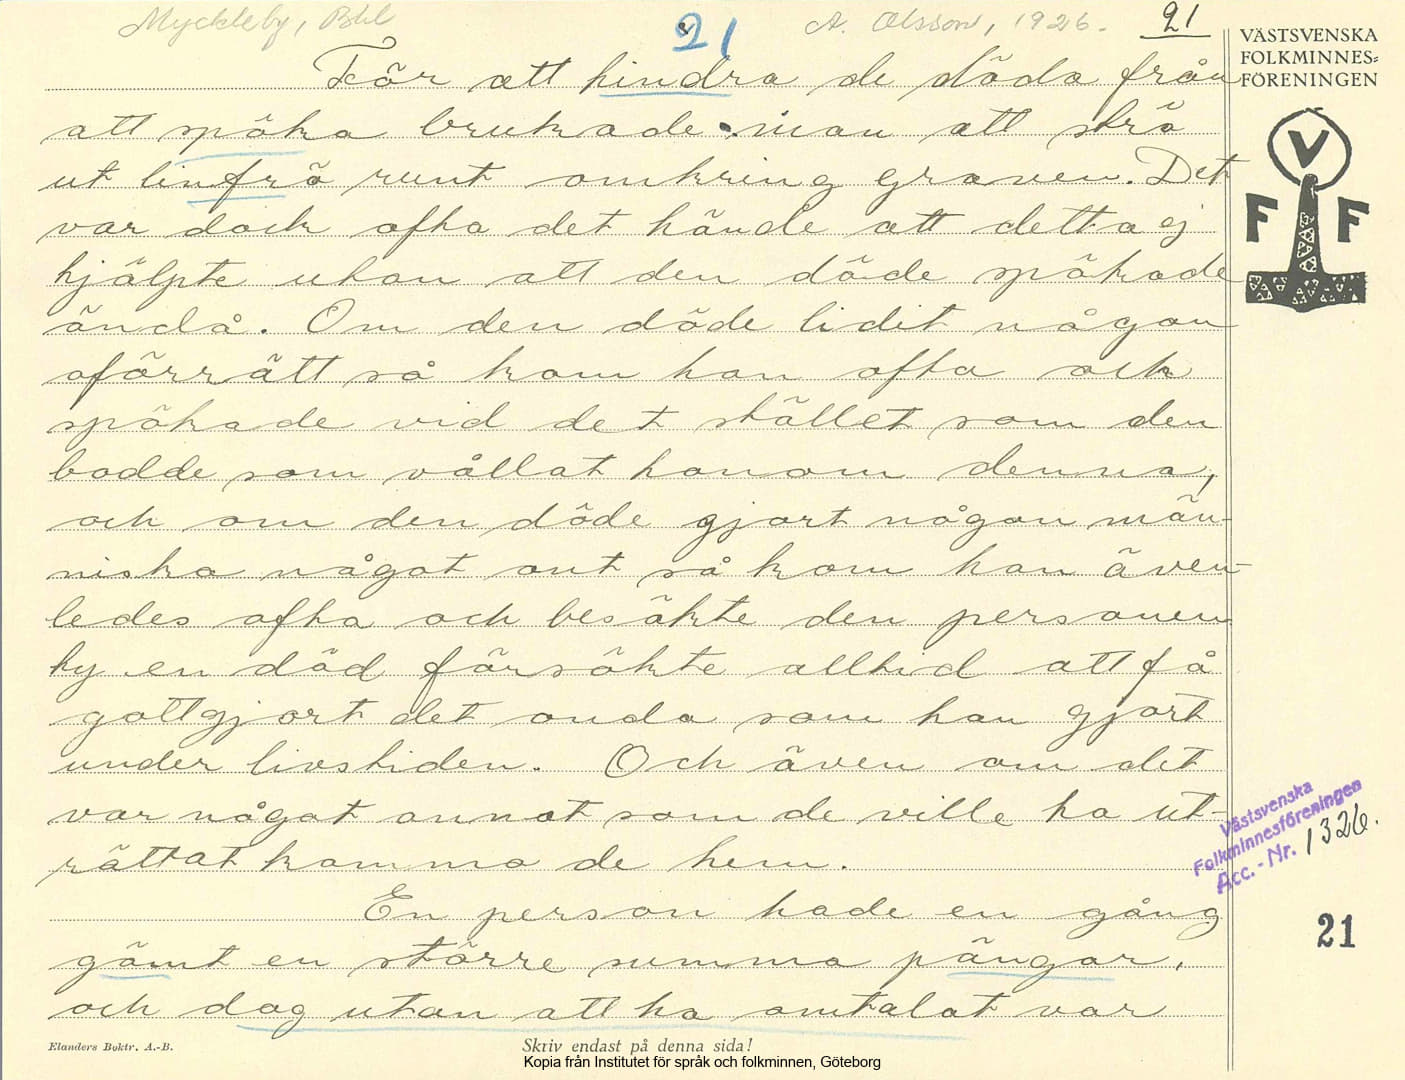 Myckleby, Bhl
21
A. Olsson, 1926.
21
VÄSTSVENSKA
FOLKMINNES=
FÖRENINGEN
V
F F
För att hindra de döda från
att spöka brukade man att strö
ut linfrö runt omkring graven. Det
var dock ofta det hände att detta ej
hjälpte utan att den döde spökade
ändå. Om den döde lidit någon
oförrätt så kom han ofta och
spökade vid det stället som den
bodde som vållat honom denna,
och om den döde gjort någon män-
niska något ont så kom han även-
ledes ofta och besökte den personen
ty en död försökte alltid att få
gottgjort det onda som han gjort
under livstiden. Och även om det
var något annat som de ville ha ut-
rättat komma de hem.
En person hade en gång
gömt en större summa pängar,
och dog utan att ha omtalat var
Västsvenska
Folkminnesföreningen
Acc.-Nr. 1326.
21
Elanders Boktr. A.-B.
Skriv endast på denna sida!
Kopia från Institutet för språk och folkminnen, Göteborg